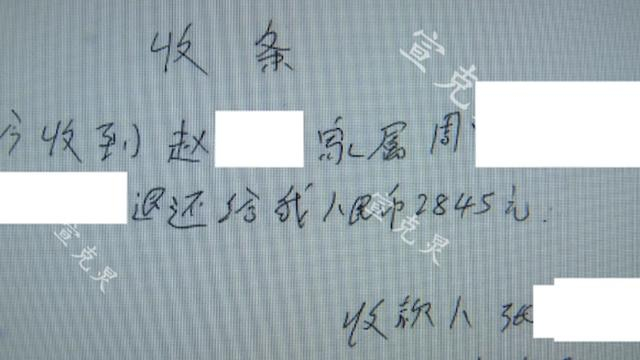 收条
今收到赵 家属周
退还给我人民币2845元.
收款人 张
宣克
宣克灵
宣克灵